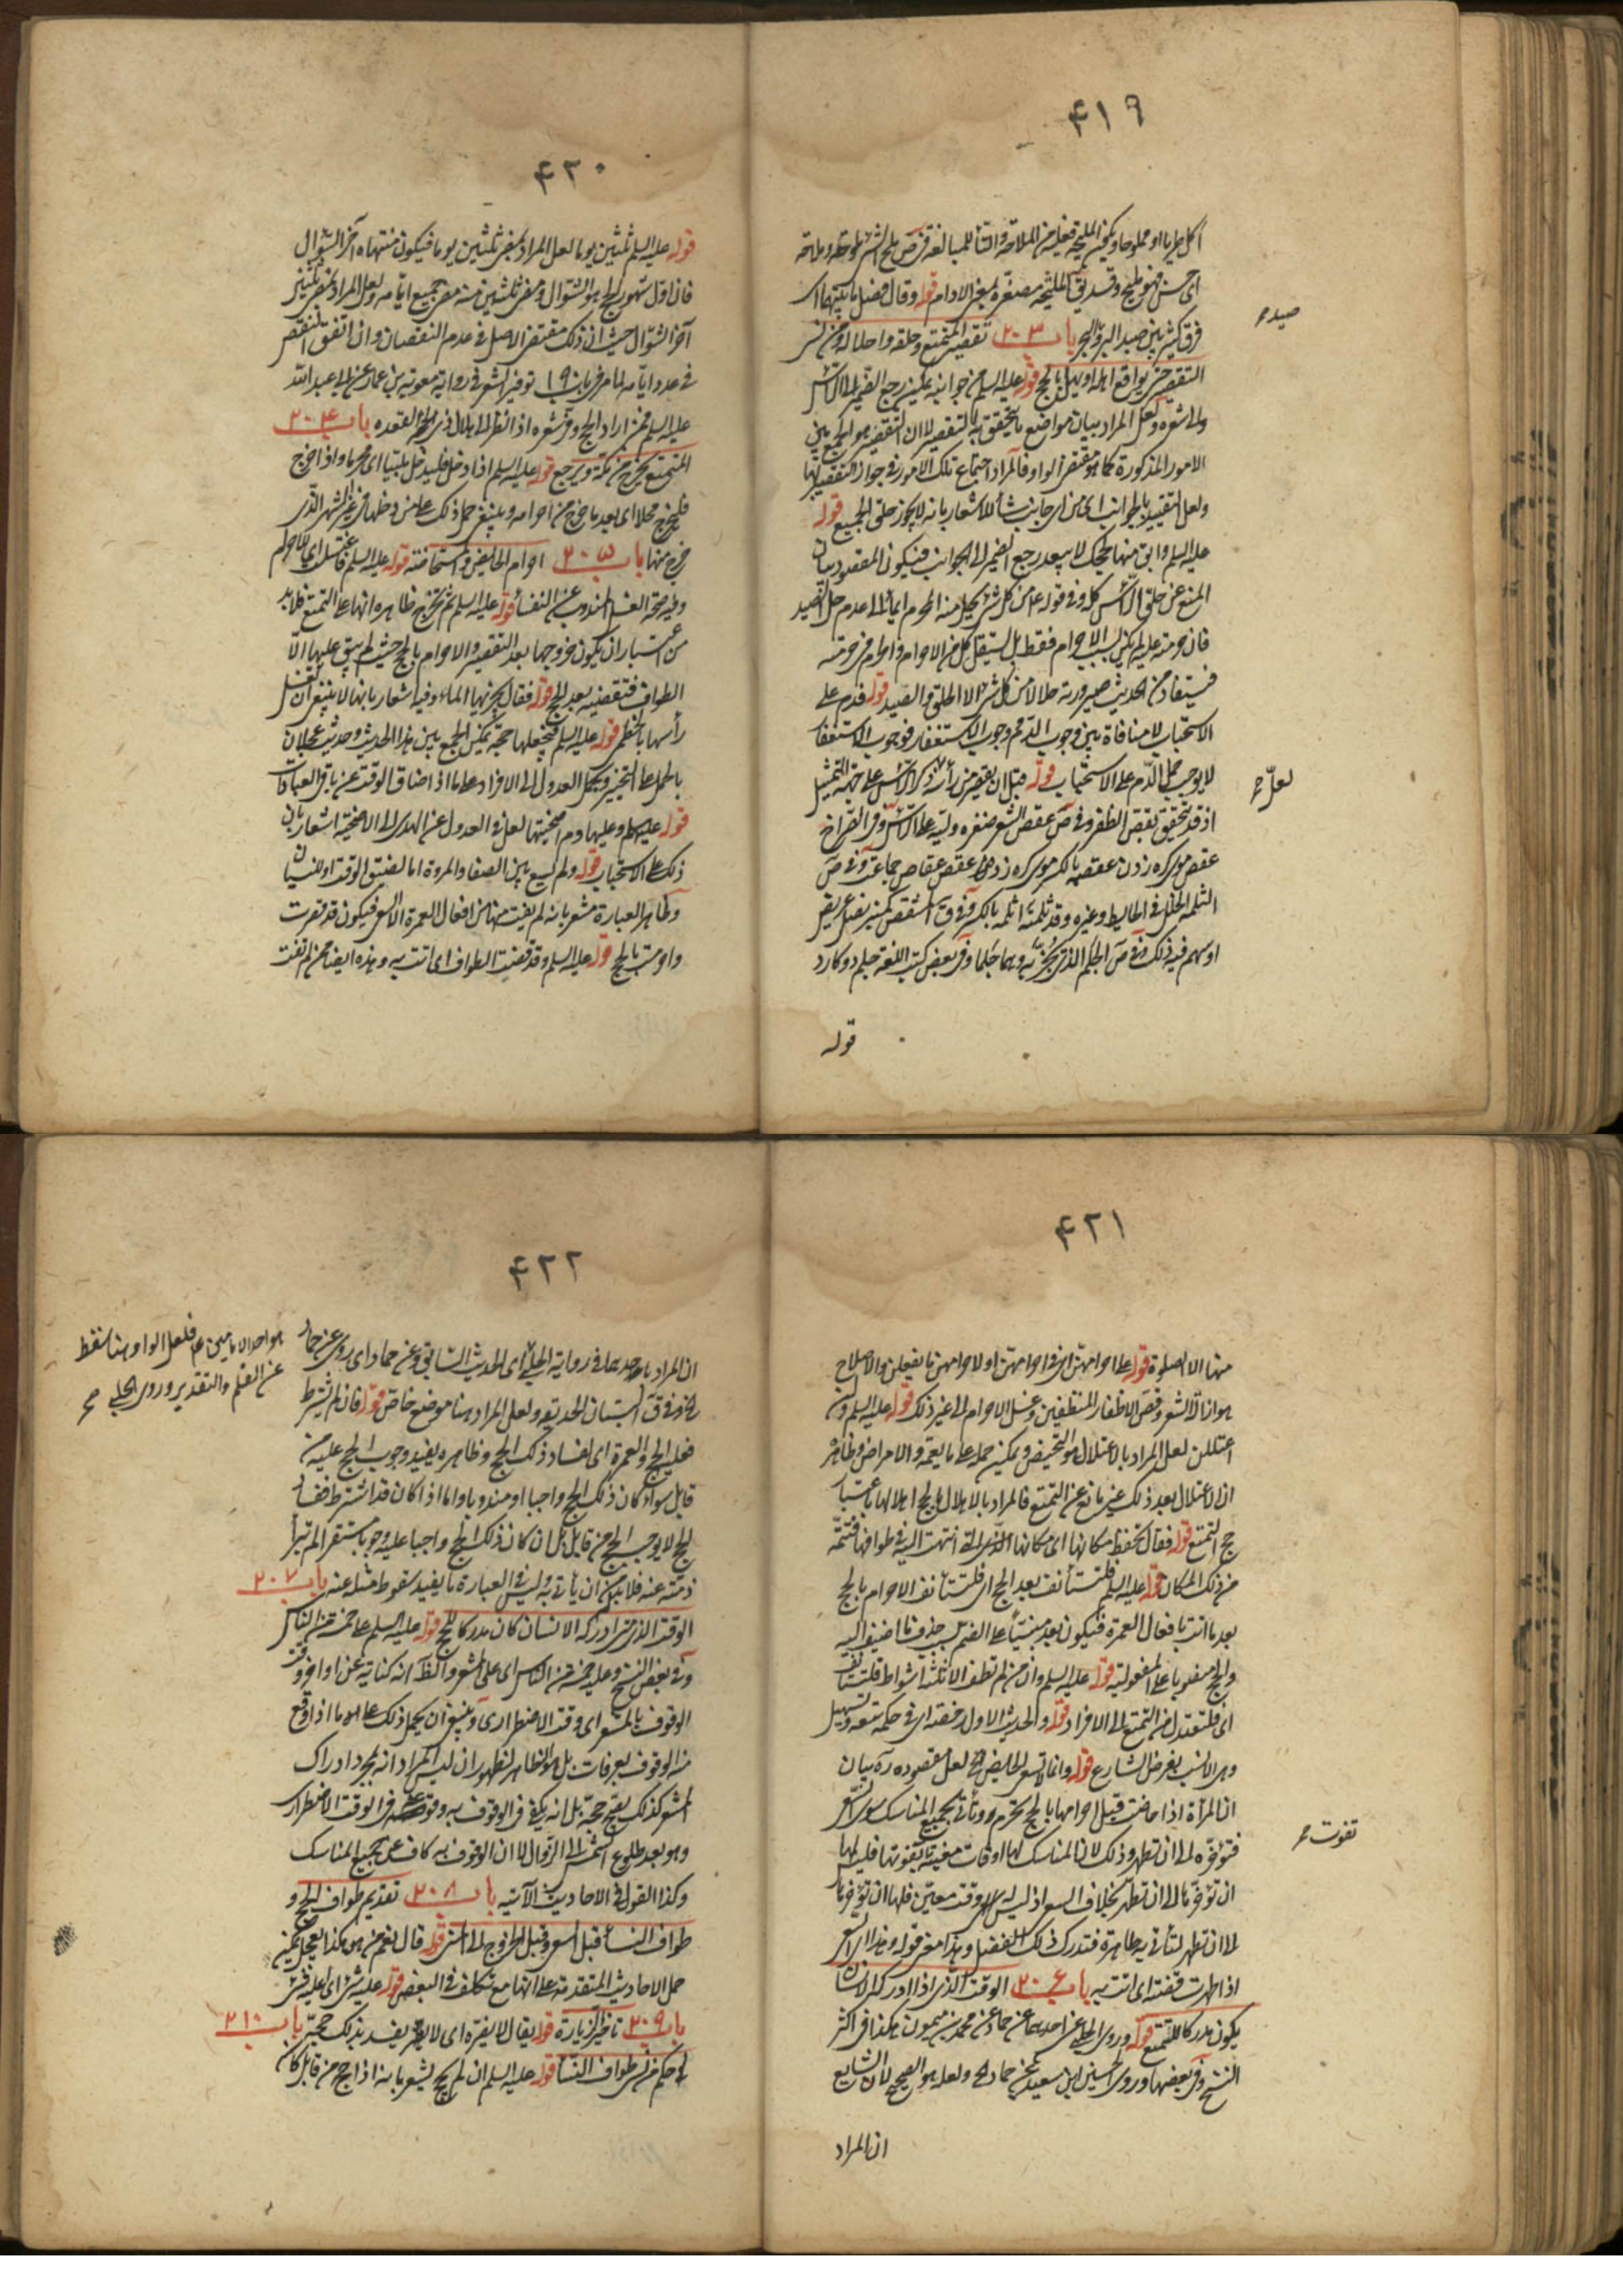 ٤١٩
أكل طريا او مملوحا ويمكن المليحة فعيلة من الملاحة والتاء للمبالغة في ص ملح الشئ ملوحة وملاحة
اى حسن فهو مليح
قوله وقال فصل ما بينهما اه
فرق كثير بين صيد البر والبحر باب ٢٠٣ تقصير المتمتع وحلقه واحلاله ومن نسى
صيد صح
التقصير حتى يواقع اهله او يهل بالحج قوله عليه السلم من جوانبه يمكن رجع الضمير الى الرأس
والى شعره ولعل المراد بيان مواضع يتحقق بها التقصير لا ان التقصير هو الجمع بين
الامور المذكورة كما هو مقتضى الواو فالمراد اجتماع تلك الامور في جواز التقصير بها
ولعل التقييد بالجوانب اى من اى جانب شاء للاشعار بانه لا يجوز حلق الجميع قوله
عليه السلم وابق منها لحجك لا يبعد رجع الضمير الى الجوانب فيكون المقصود بيان
المنع عن حلق الرأس كله وفى قوله من كل شئ يحل منه المحرم ايماء الى عدم حل الصيد
فان حرمته عليه لم يكن بسبب الاحرام فقط بل يستقل كل من الاحرام والحرم في حرمته
فيستفاد من الحديث صيرورته حلالا من كل شئ الا الحلق والصيد قوله قدم على
الاستحباب لا منافاة بين وجوب الدم ووجوب الاستغفار فوجوب الاستغفار
لا يوجب حمل الدم على الاستحباب قوله قبل ان يقصر من رأسه ذكر الرأس على جهة التمثيل
لعل صح
اذ قد يتحقق بقص الظفر وفى ص عقص الشعر ضفره وليه على الرأس وفى الصراح
عقص موى كره زدن عقصه بالكسر موى كره زده عقص عقاص جماعت وفى ص
الثلمة الخلل في الحايط وغيره وقد ثلمته اثلمه بالكسر وفى ق المشقص كمنبر نصل عريض
او سهم فيه ذلك وفى ص الجلم الذى يجز به وهما جلمان وفى بعض كتب اللغة جلم دو كارد
قوله
٤٢٠
قوله عليه السلم ثلثين يوما لعل المراد بمضى ثلثين يوما فيكون منتهاه آخر الشوال
فان اول شهور الحج هو الشوال ومضى ثلثين منه مضى جميع ايامه ولعل المراد بمضى ثلثين
آخر الشوال حيث ان ذلك مقتضى الاصل في عدم النقصان وان اتفق النقص
في عدد ايامه لما مر في باب ١٩٠ توفير الشعر في رواية معوية بن عمار عن ابى عبد الله
عليه السلم فمن اراد الحج وفر شعره اذا نظر الى هلال ذى القعده باب ٢٠٤
المتمتع يخرج من مكة ويرجع قوله عليه السلم اذا دخل فليدخل ملبيا اى محرما واذا خرج
فليخرج محلا اى بعد ما خرج من احرامه وينبغى حمل ذلك على من دخلها في غير الشهر الذى
خرج منها باب ٢٠٥ احرام الحايض والمستحاضة قوله عليه السلم فاغتسلت اى للاحرام
وفيه صحة الغسل المندوب عن النفساء قوله عليه السلم ثم تخرج ظاهره انها على التمتع فلا بد
من اعتبار ان يكون خروجها بعد التقصير والاحرام بالحج حيث لم يبق عليها الا
الطواف فتقضيه بعد الحج قوله فقال يجزيها الماء وفيه اشعار بانها لا ينبغى ان تغسل
رأسها بالخطمى قوله عليه السلم فتجعلها حجة يمكن الجمع بين هذا الحديث وحديث عجلان
بالحمل على التخيير وبحمل العدول الى الافراد على ما اذا ضاق الوقت عن باقى العبادات
قوله عليه السلم وعليها دم اضحيتها لعل في العدول عن الهدى الى الاضحية اشعار بان
ذلك على الاستحباب قوله ولم تسع بين الصفا والمروة اما لضيق الوقت او للنسيان
وظاهر العبارة مشعر بانه لم يفت منها من افعال العمرة الا السعى فيكون قد قصرت
واحرمت بالحج قوله عليه السلم وقد قضيت الطواف اى اتت به وهذه ايضا ممن لم تفت
٤٢١
منها الا الصلوة قوله على احرامهن اى في احرامهن او لاحرامهن ما يفعلن والاصلاح
هو ازالة الشعر وقص الاظفار للتنظيف وغسل الاحرام الى غير ذلك قوله عليه السلم وان
اعتللن لعل المراد بالاعتلال هو التحيض ويمكن حمله على ما يعمه والامراض وظاهره
ان الاعتلال بعد ذلك غير مانع عن التمتع فالمراد بالاهلال بالحج اهلالها باعتبار
حج التمتع قوله فقال تحفظ مكانها اى مكانها الذى انتهت اليه في طوافها فتتمه
من ذلك المكان قوله عليه السلم فلتستأنف بعد الحج اى فلتستأنف الاحرام بالحج
بعد ما اتت بافعال العمرة فيكون بعد مبنيا على الضم بحذف ما اضيف اليه
والحج منصوبا على المفعولية قوله عليه السلم وان هى لم تطف الا ثلثة اشواط فلتستأنف
اى فلتعدل من التمتع الى الافراد قوله والحديث الاول رخصة اى في حكمه سعة وتسهيل
وهو الانسب بغرض الشارع قوله وانما لا تسعى الحايض الخ لعل مقصوده ره بيان
ان المرأة اذا حاضت قبل احرامها بالحج تحرم وتأتى بجميع المناسك سوى السعى
فتؤخره الى ان تطهر وذلك لان المناسك لها اوقات معينة تفوتها فليس لها
تفوت صح
ان تؤخرها الى ان تطهر بخلاف السعى اذ ليس له وقت معين فلها ان تؤخرها
الى ان تطهر لتأتى به طاهرة فتدرك ذلك الفضيل وهذا معنى قوله وهذا السعى
اذا طهرت قضته اى اتت به باب ٢٠٦ الوقت الذى اذا ادركه الانسان
يكون مدركا للتمتع قوله وروى الحلبى عن احدهما عن حماد عن محمد بن ميمون هكذا في اكثر
النسخ وفى بعضها وروى الحسين بن سعيد عن حماد الخ ولعله هو الصحيح لان الشايع
ان المراد
٤٢٢
ان المراد باحدهما في رواية الحلبى اى الحديث السابق وعن حماد اى روى عن حماد
هو احد الامامين عم فلعل الواو هنا سقط
عن القلم والتقدير وروى الحلبى صح
الخ وفى ق البستان الحديقة ولعل المراد هنا موضع خاص قوله فان لم يشترط
فعليه الحج والعمرة اى لفساد ذلك الحج وظاهره يفيد وجوب الحج عليه من
قابل سواء كان ذلك الحج واجبا او مندوبا واما اذا كان قد اشترط ففساد
الحج لا يوجب الحج من قابل بل ان كان ذلك الحج واجبا عليه وجوبا مستقرا لم تبرأ
ذمته عنه فلا بد من ان يأتى به وليس في العبارة ما يفيد سقوط مثله عنه باب ٢٠٧
الوقت الذى متى ادركه الانسان كان مدركا للحج قوله عليه السلم على خمسة من الناس
وفى بعض النسخ وعليه خمسة من الناس اى على المشعر والظ انه كناية عن اواخر وقت
الوقوف بالمشعر اى وقت الاضطرارى وينبغى ان يحمل ذلك على ما اذا وقع
منه الوقوف بعرفات بل هو الظاهر لظهور ان ليس المراد انه بمجرد ادراك
المشعر كذلك يصح حجه بل انه يكفى في الوقوف به وقوعه في الوقت الاضطرارى
وهو بعد طلوع الشمس الى الزوال لا ان الوقوف به كاف عن جميع المناسك
وكذا القول في الاحاديث الآتيه باب ٢٠٨ تقديم طواف الحج و
طواف النساء قبل السعى وقبل الخروج الى منى قوله قال نعم من هو هكذا يعجل يمكن
حمل الاحاديث المتقدمة على هذا مع تكلف في البعض قوله عليه شئ اى عليه شئ
باب ٢٠٩ تاخير الزيارة قوله يقال لا يضره اى لا يضر يفسد بذلك حجه باب ٢١٠
في حكم من نسى طواف النساء قوله عليه السلم ان لم يحج يشعر بانه اذا حج من قابل كان